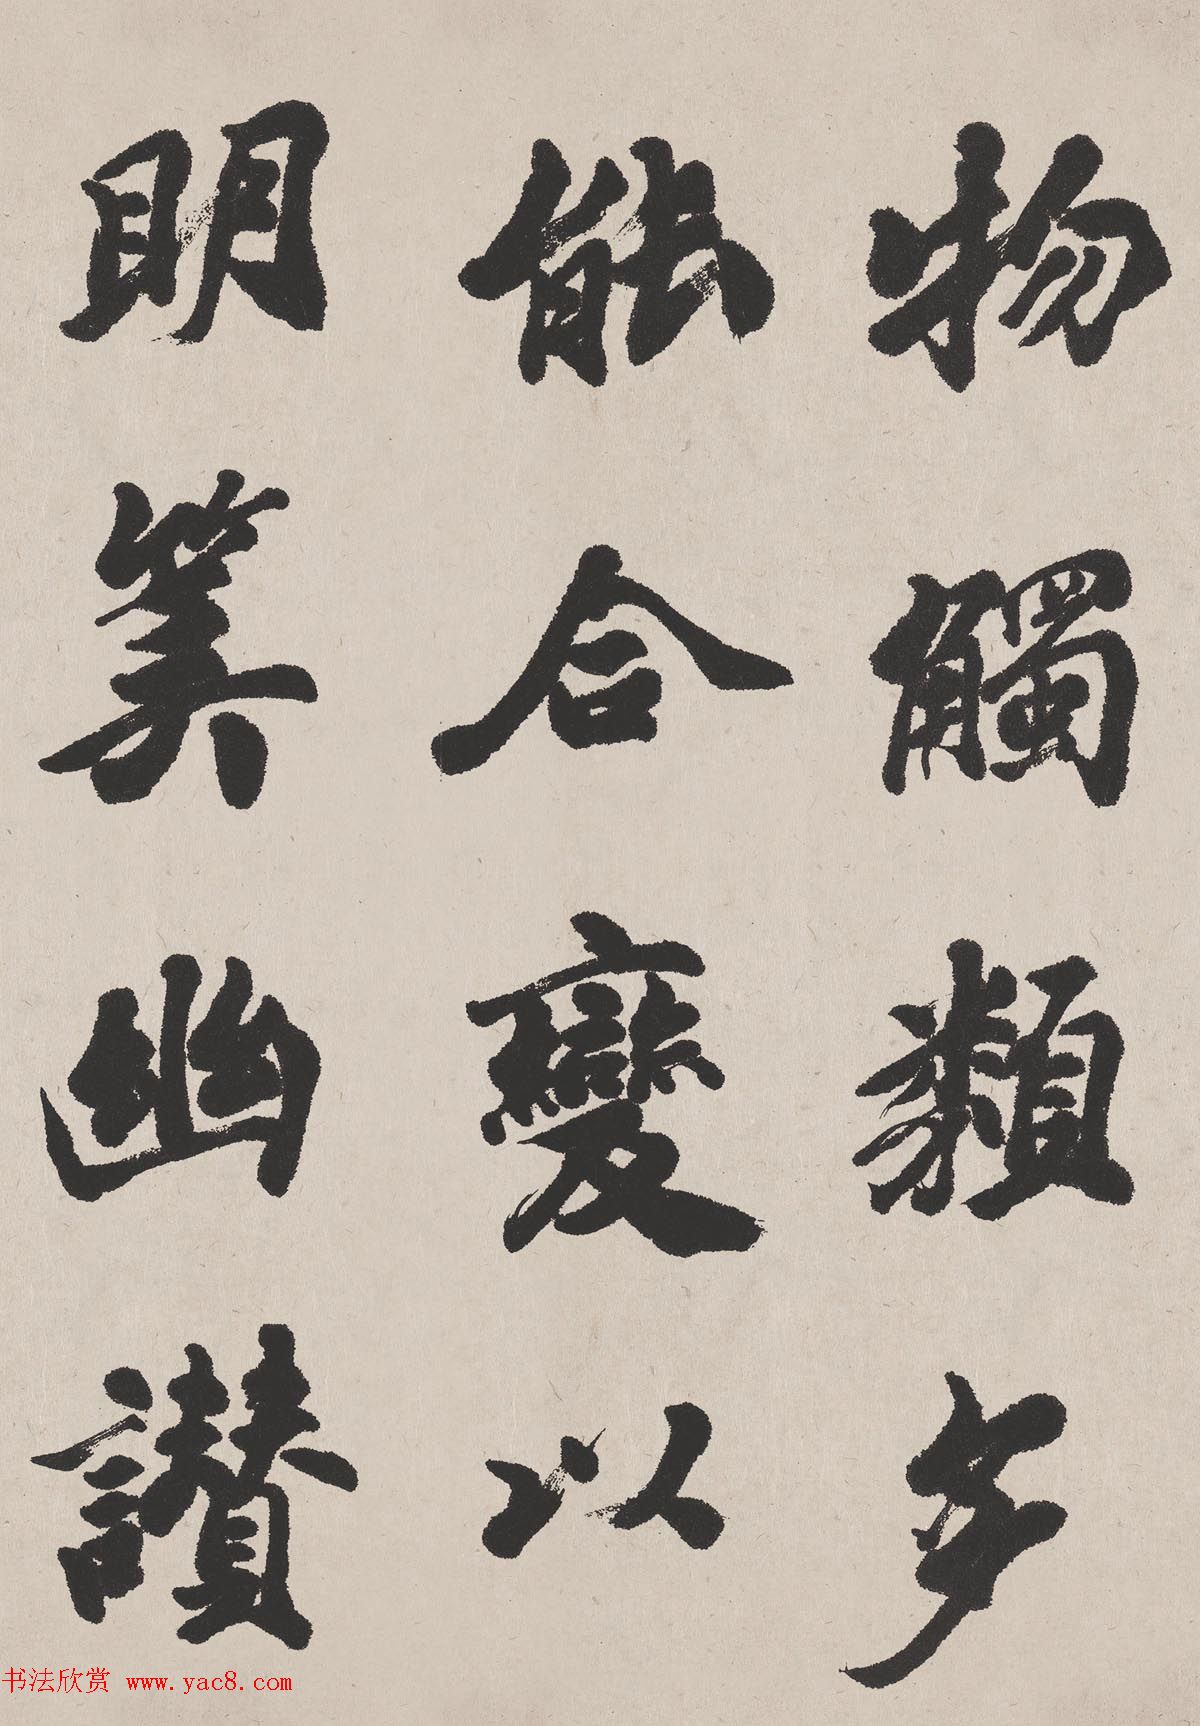 物觸類多
能合變以
明筭幽讃
书法欣赏 www.yac8.com